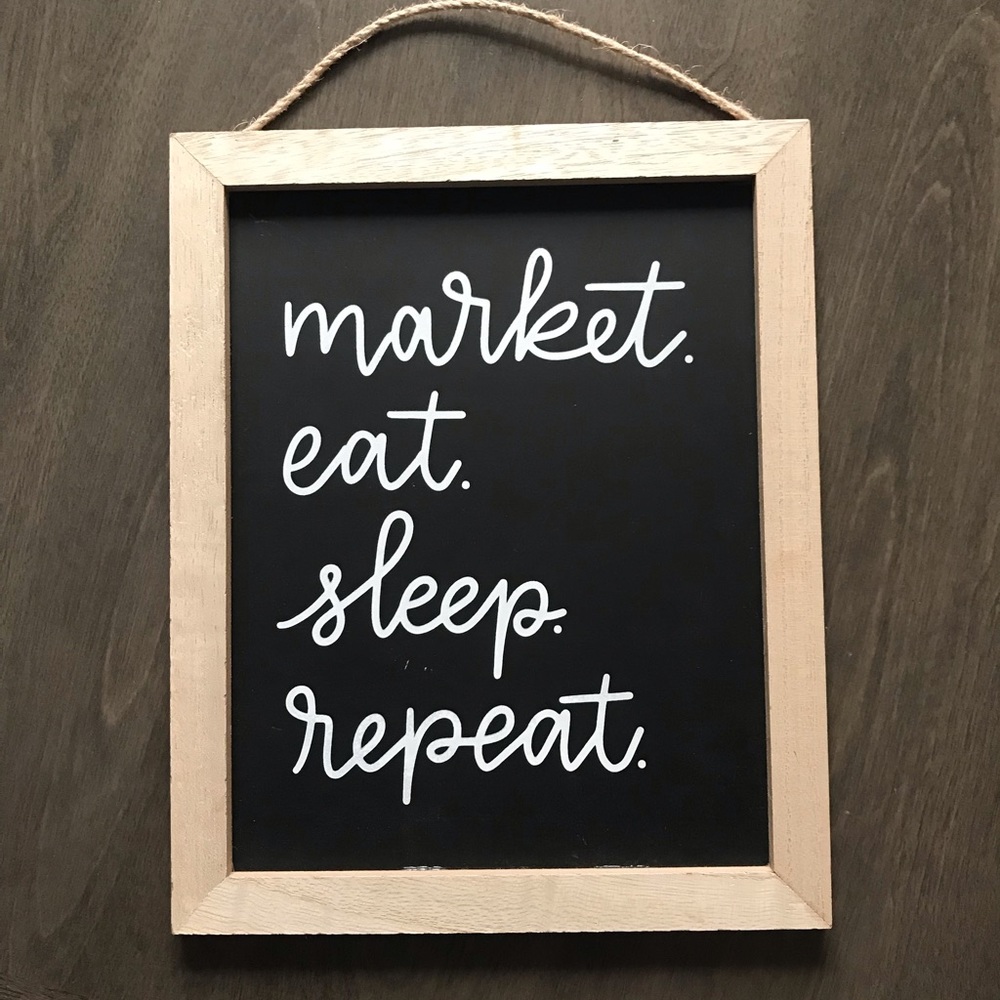 market.
eat.
sleep.
repeat.